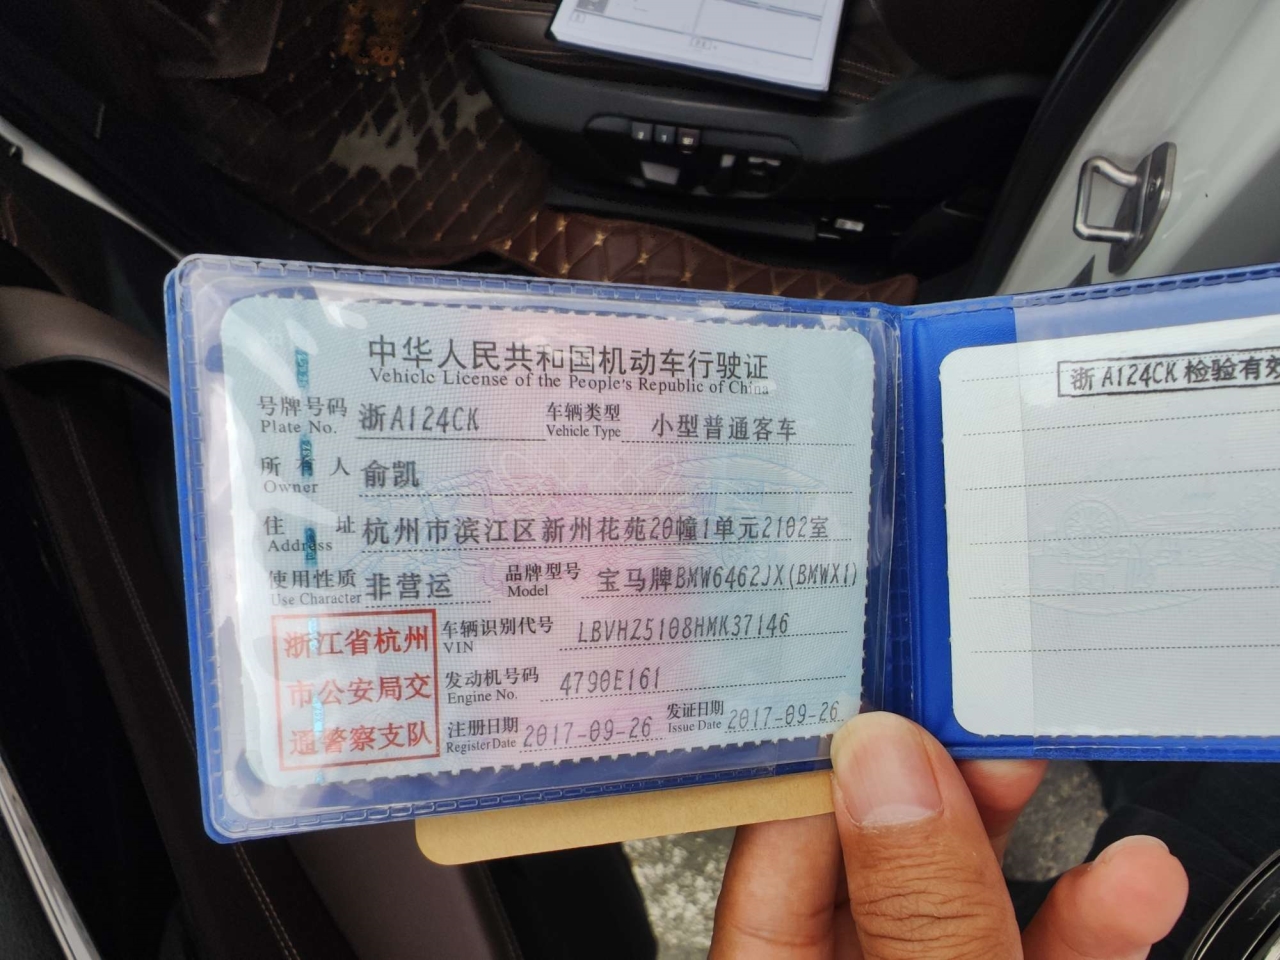 中华人民共和国机动车行驶证
Vehicle License of the People's Republic of China
号牌号码 浙A124CK 车辆类型 小型普通客车
Plate No. Vehicle Type
所有人 俞凯
Owner
住址 杭州市滨江区新州花苑20幢1单元2102室
Address
使用性质 非营运 品牌型号 宝马牌BMW6462JX(BMWX1)
Use Character Model
浙江省杭州
市公安局交
通警察支队
车辆识别代号 LBVHZ5108HMK37146
VIN
发动机号码 4790E161
Engine No.
注册日期 2017-09-26 发证日期 2017-09-26
Register Date Issue Date
浙A124CK检验有效